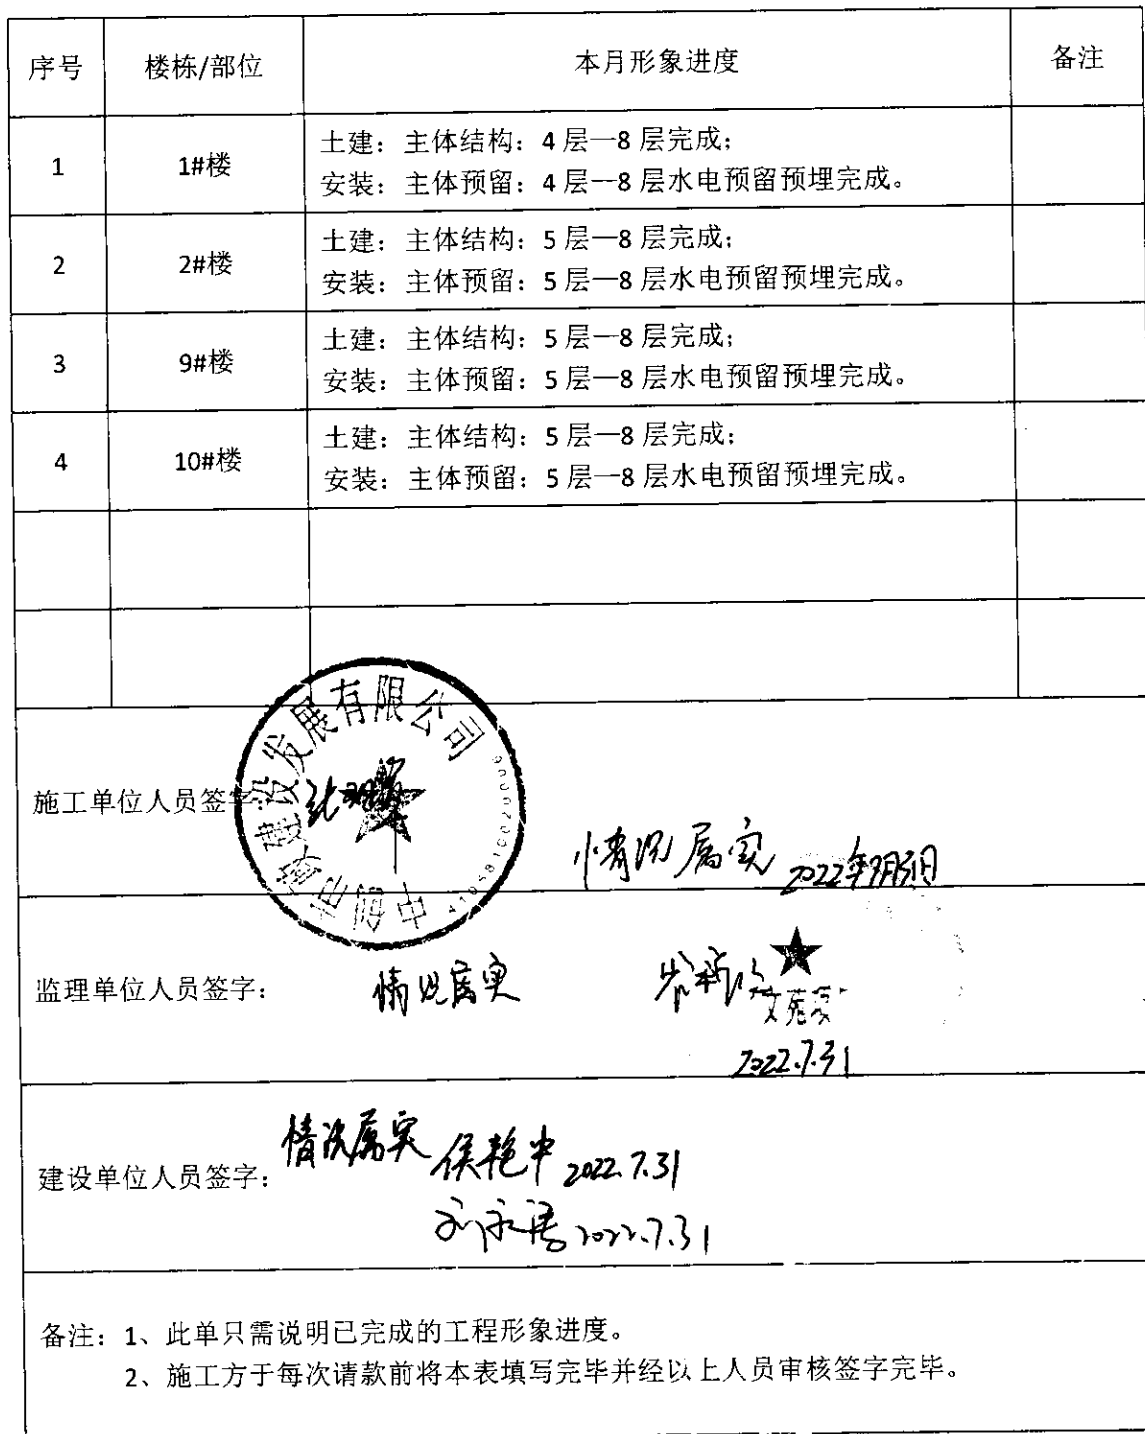 序号 楼栋/部位 本月形象进度 备注
1 1#楼 土建：主体结构：4层—8层完成；
安装：主体预留：4层—8层水电预留预埋完成。
2 2#楼 土建：主体结构：5层—8层完成；
安装：主体预留：5层—8层水电预留预埋完成。
3 9#楼 土建：主体结构：5层—8层完成；
安装：主体预留：5层—8层水电预留预埋完成。
4 10#楼 土建：主体结构：5层—8层完成；
安装：主体预留：5层—8层水电预留预埋完成。
建设发展有限公司
施工单位人员签字
情况属实 2022年7月31日
监理单位人员签字： 情况属实
2022.7.31
建设单位人员签字： 情况属实 侯艳中 2022.7.31
2022.7.31
备注：1、此单只需说明已完成的工程形象进度。
2、施工方于每次请款前将本表填写完毕并经以上人员审核签字完毕。